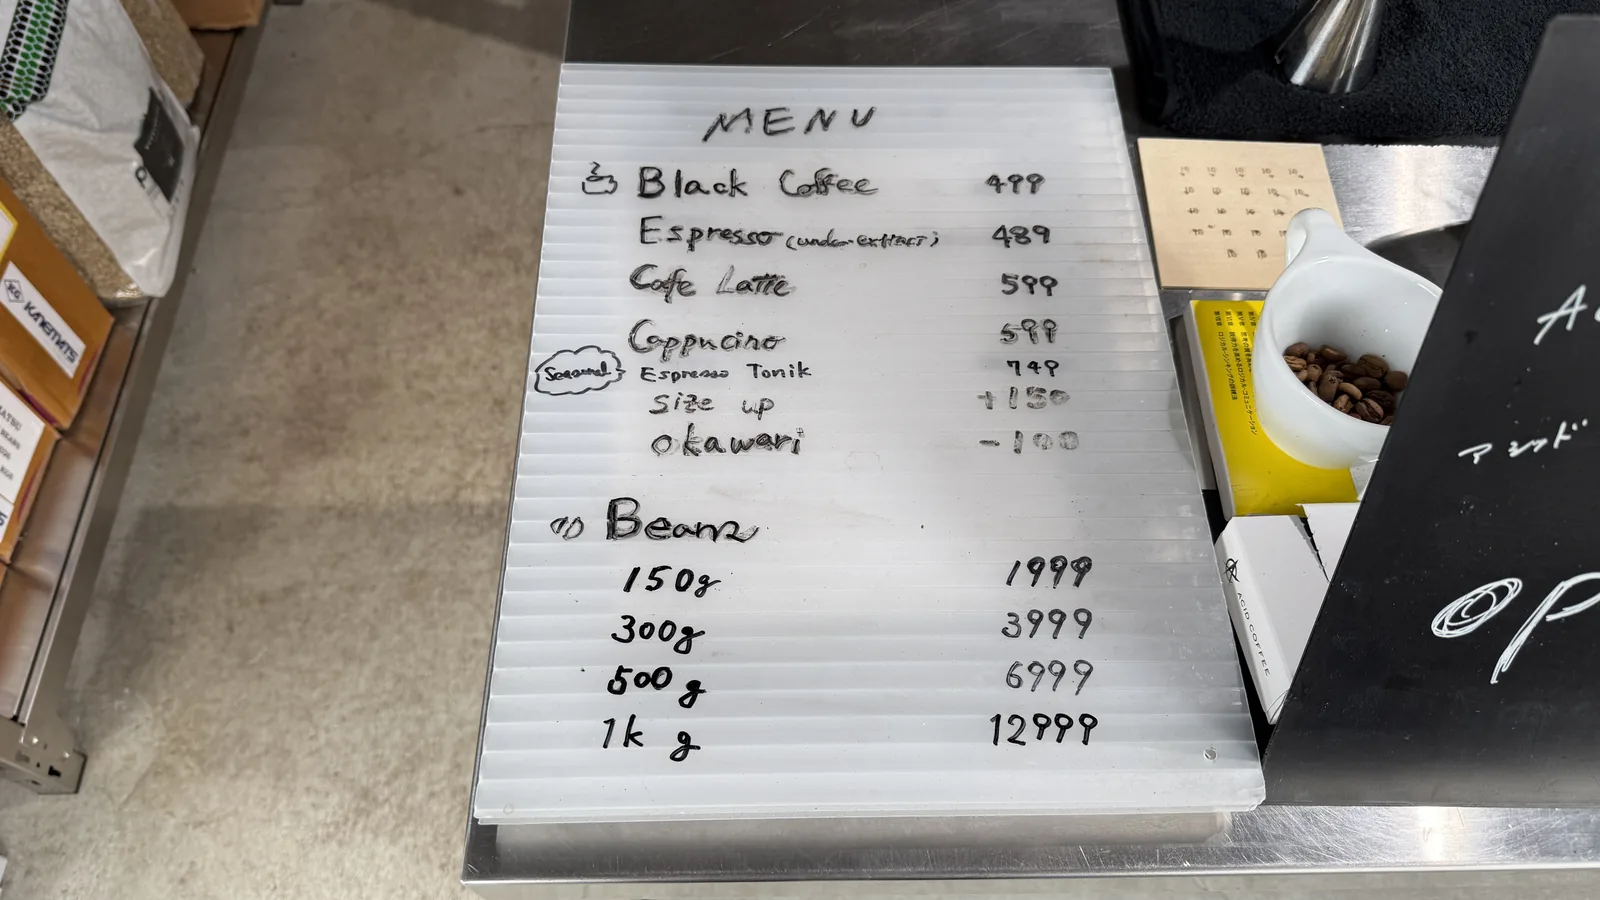 MENU
Black Coffee 499
Espresso (under-extract) 489
Cafe Latte 599
Cappucino 599
Seasonal Espresso Tonik 749
Size up +150
Okawari -100
Beans
150g 1999
300g 3999
500g 6999
1kg 12999
KANEMATS
BEANS
ACID COFFEE
アシッド
OP